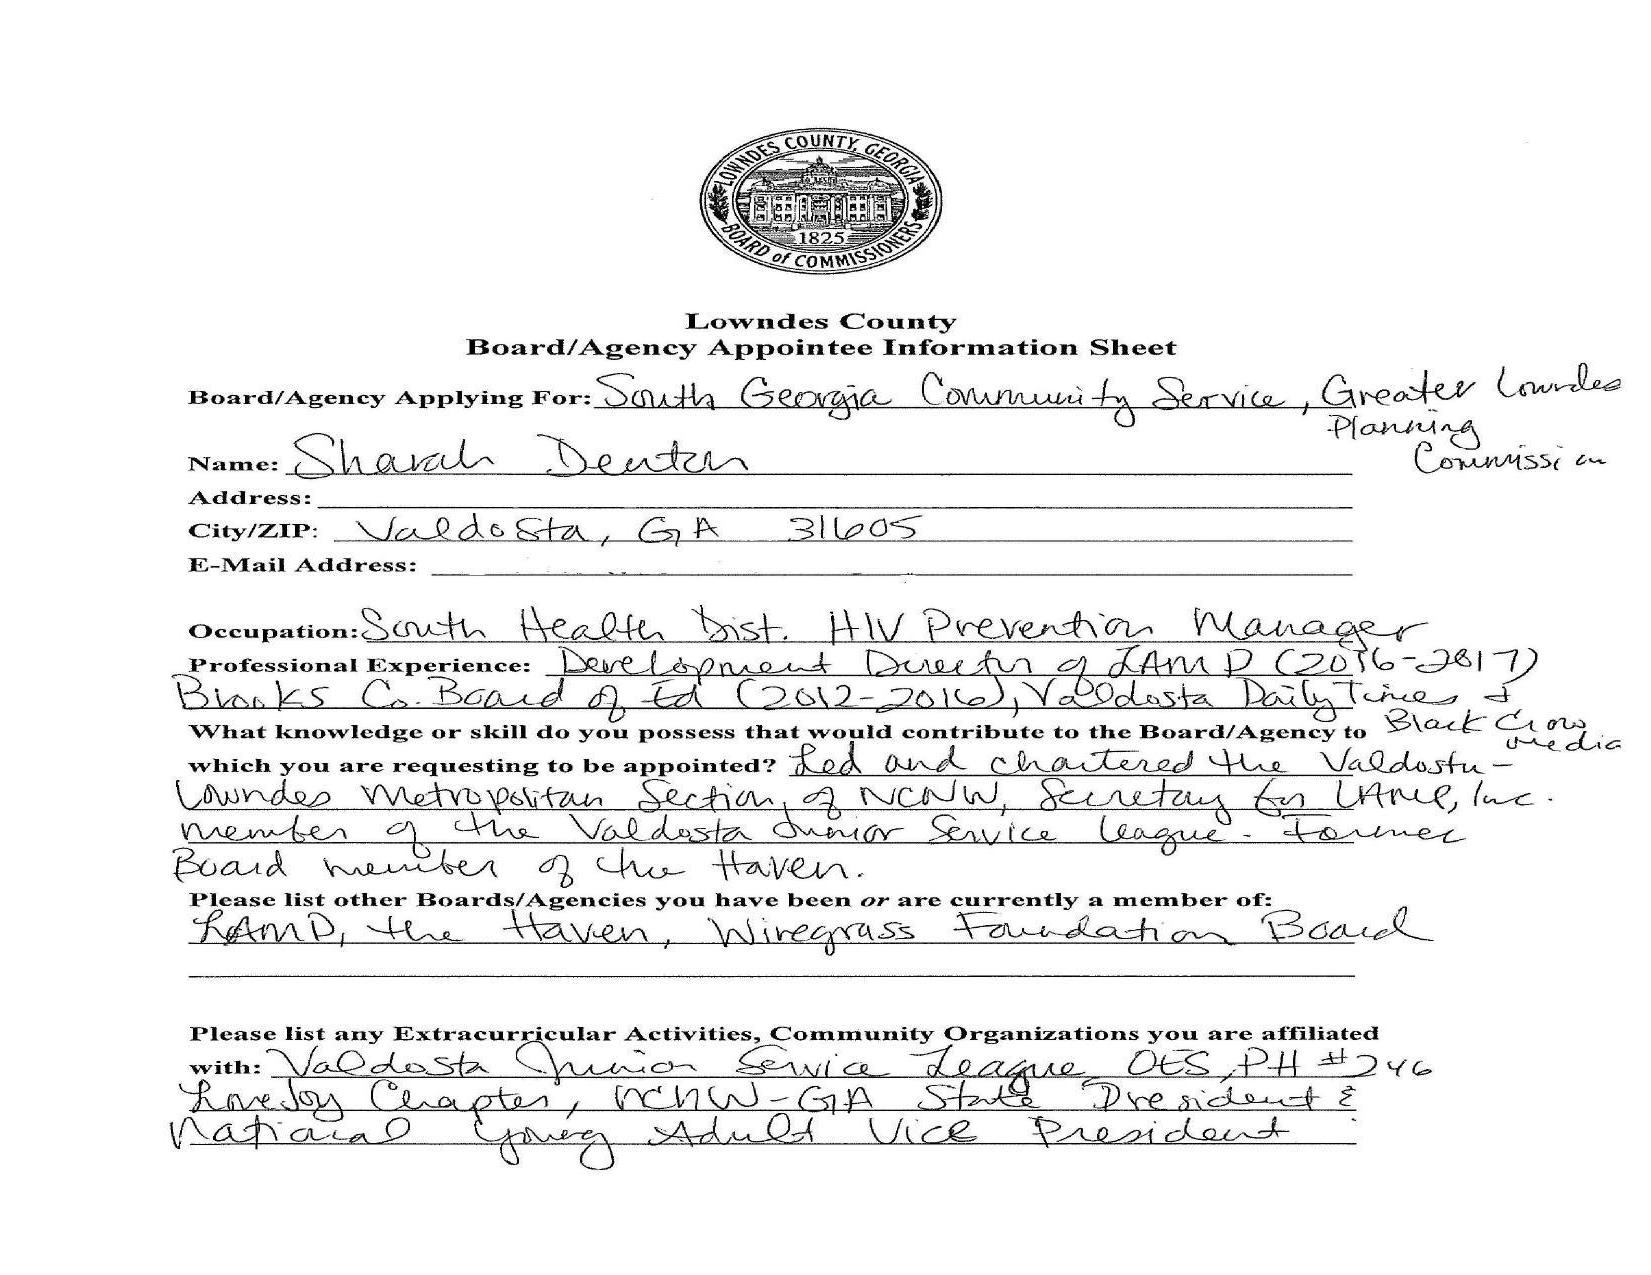 LOWNDES COUNTY, GEORGIA
1825
BOARD of COMMISSIONERS
Lowndes County
Board/Agency Appointee Information Sheet
Board/Agency Applying For: South Georgia Community Service, Greater Lowndes
Planning
Commission
Name: Sharah Denton
Address:
City/ZIP: Valdosta, GA 31605
E-Mail Address:
Occupation: South Health Dist. HIV Prevention Manager
Professional Experience: Development Director of LAMP (2016-2017)
Brooks Co. Board of Ed (2012-2016), Valdosta Daily Times &
Black Crow
media
What knowledge or skill do you possess that would contribute to the Board/Agency to
which you are requesting to be appointed? Led and chartered the Valdosta-
Lowndes Metropolitan Section of NCNW, Secretary for LAMP, Inc.
member of the Valdosta Junior Service League. Former
Board member of the Haven.
Please list other Boards/Agencies you have been or are currently a member of:
LAMP, the Haven, Wiregrass Foundation Board
Please list any Extracurricular Activities, Community Organizations you are affiliated
with: Valdosta Junior Service League, OES, PH #246
Lovejoy Chapter, NCNW-GA State President &
National Young Adult Vice President